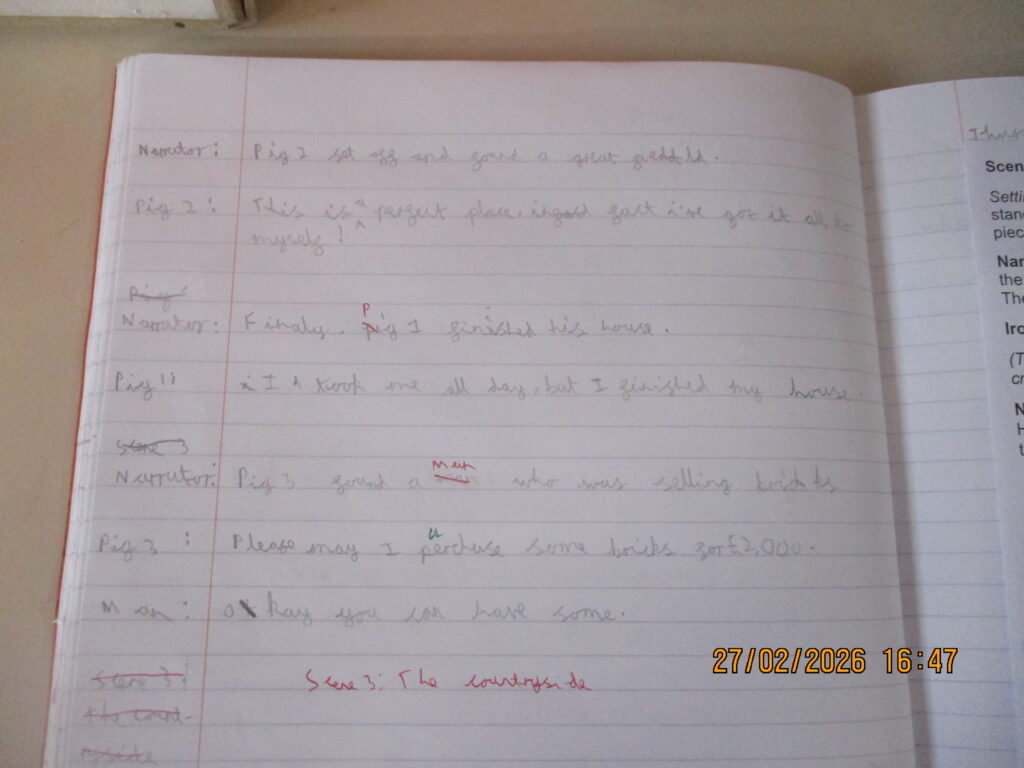 Narrator: Pig 2 set off and found a great
Pig 2: This is a perfect place, fact i've got it all to
myself!
Pig 1
Narrator: Finaly, Pig 1 finished his house.
Pig 1: I took me all day, but I finished my house.
Scene 3
Narrator: Pig 3 found a man who was selling bricks
Pig 3: Please may I perchase some bricks for £2,000.
u
Man: okay you can have some.
Scene 3: Scene 3: The countryside
the count-
ryside
Thurs
Scen
Setti
stand
piec
Nar
the
The
Iro
(T
cr
N
H
t
27/02/2026 16:47